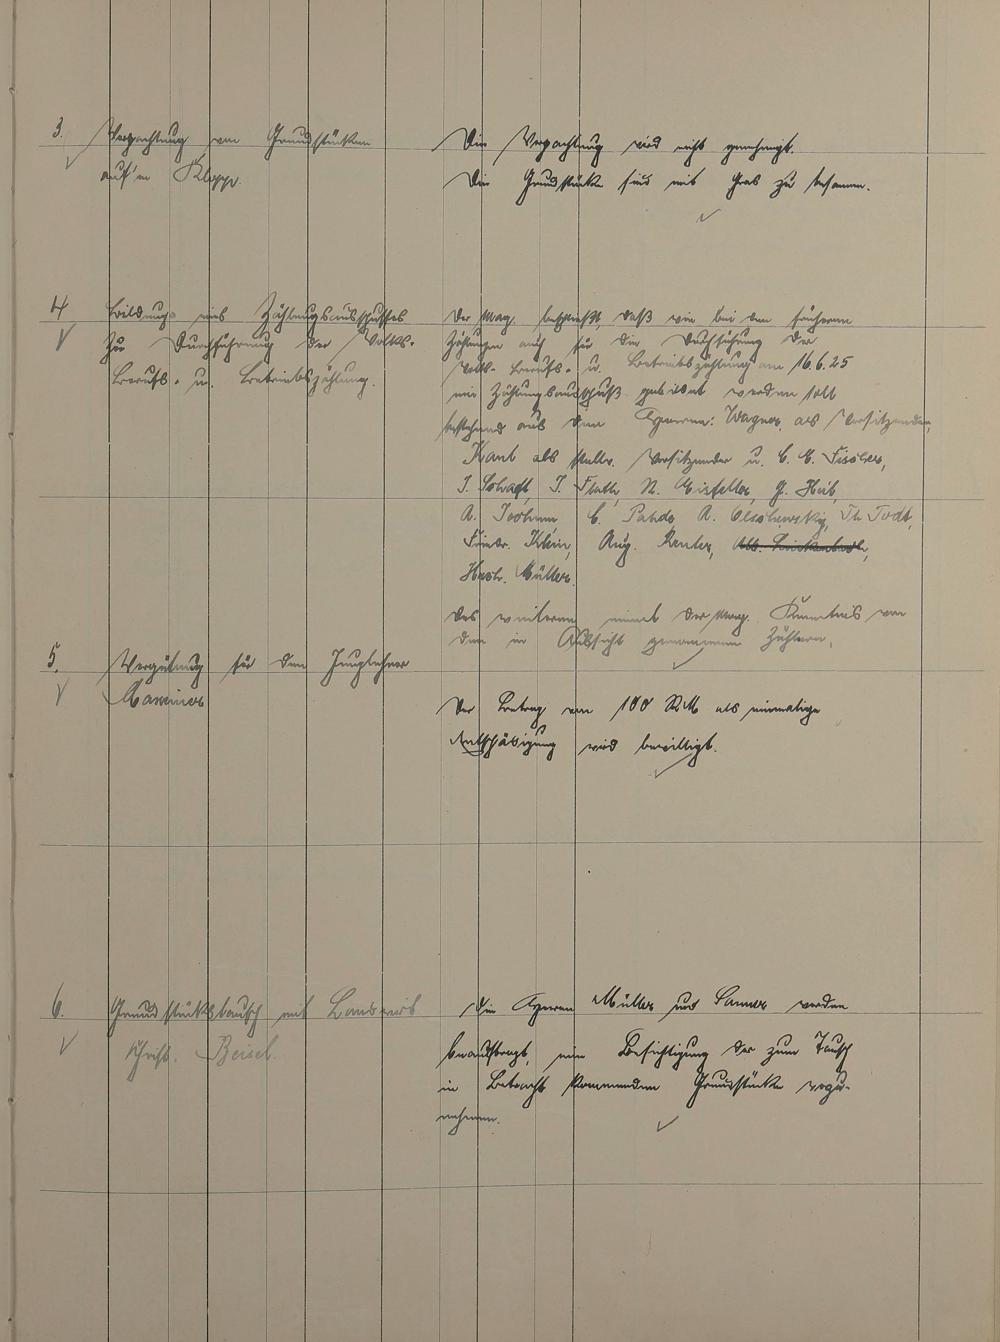 3. Verpachtung von Grundstücken
auf'm Klopp.
Die Verpachtung wird nicht genehmigt.
Die Grundstücke sind mit Gras zu besamen.
4 Bildung eines Zählungsausschusses
zur Durchführung der Volks-
Berufs- u. Betriebszählung.
Der Mag. beschließt, daß wie bei den früheren
Zählungen auch für die Durchführung der
Volks- Berufs- u. Betriebszählung am 16.6.25
ein Zählungsausschuß gebildet werden soll
bestehend aus den Herren: Wagner, als Vorsitzenden,
Kant als stellv. Vorsitzender u. C. E. Fischer,
J. Schaft, J. Flath, N. Eisfeller, G. Heib,
A. Jochum C. Pabde A. Olschewsky, Th Todt,
Friedr. Klein, Aug. Reuter,
Müller.
Des weiteren nimmt der Mag. Kenntnis von
den in Aussicht genommenen Zählern.
5. Vergütung für den Junglehrer
Der Betrag von 100 RM als einmalige
Entschädigung wird bewilligt.
6. Grundstückstausch mit Landwirt
Christ. Beisel.
Die Herren Müller und Sanner werden
beauftragt, eine Besichtigung der zum Tausch
in Betracht kommenden Grundstücke vorzu-
nehmen.